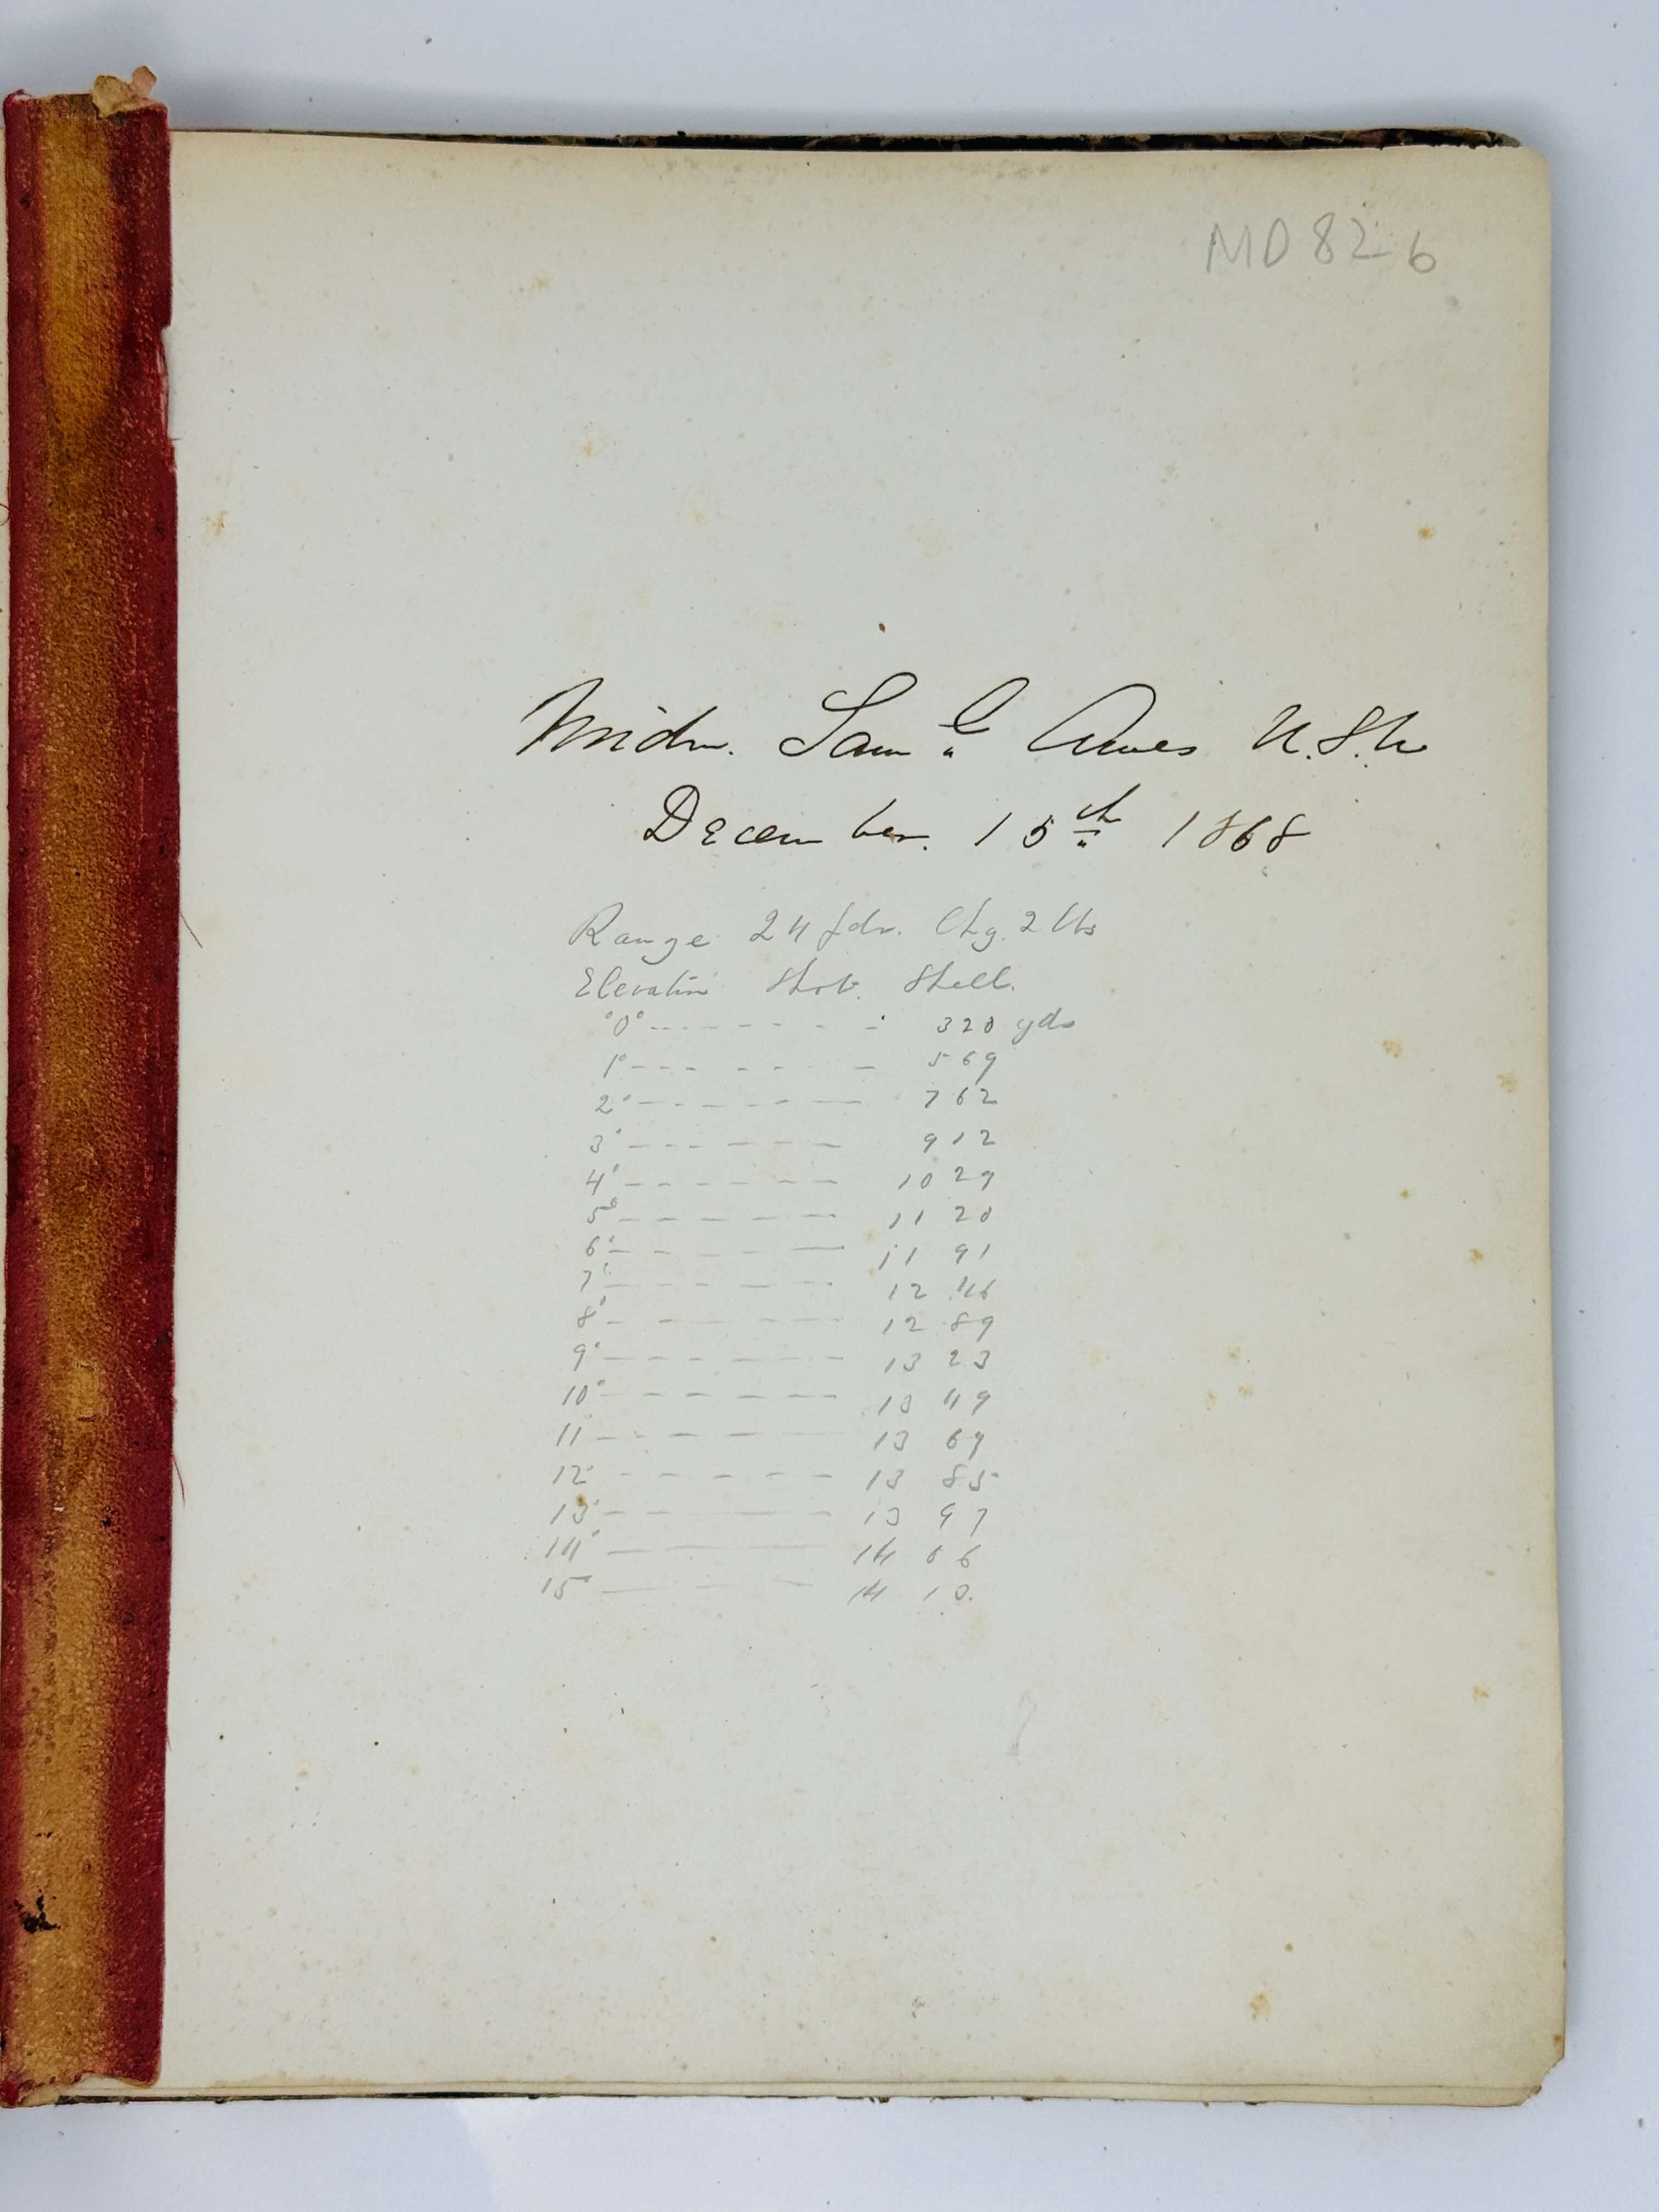 MD 826
Midn. Saml Ames U.S.N.
December. 15th 1868
Range 24 pdr. Chg. 2 lbs
Elevation Shot. Shell.
0° - - - - - - 320 yds
1° - - - - - - 569
2° - - - - - - 762
3° - - - - - - 912
4° - - - - - - 1029
5° - - - - - - 1120
6° - - - - - - 1191
7° - - - - - - 1246
8° - - - - - - 1289
9° - - - - - - 1323
10° - - - - - - 1349
11 - - - - - - 1369
12 - - - - - - 1385
13° - - - - - - 1397
14° - - - - - - 1406
15° - - - - - - 1413.